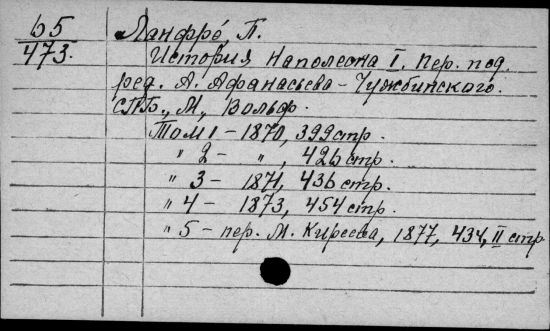 65
473.
Ланфрэ́, П.
История Наполеона I. Пер. под
ред. А. Афанасьева-Чужбинского.
СПБ., М., Вольф.
Том 1 - 1870, 399 стр.
" 2 - " , 426 стр.
" 3 - 1871, 436 стр.
" 4 - 1873, 454 стр.
" 5 - пер. М. Киреева, 1877, 434, II стр.